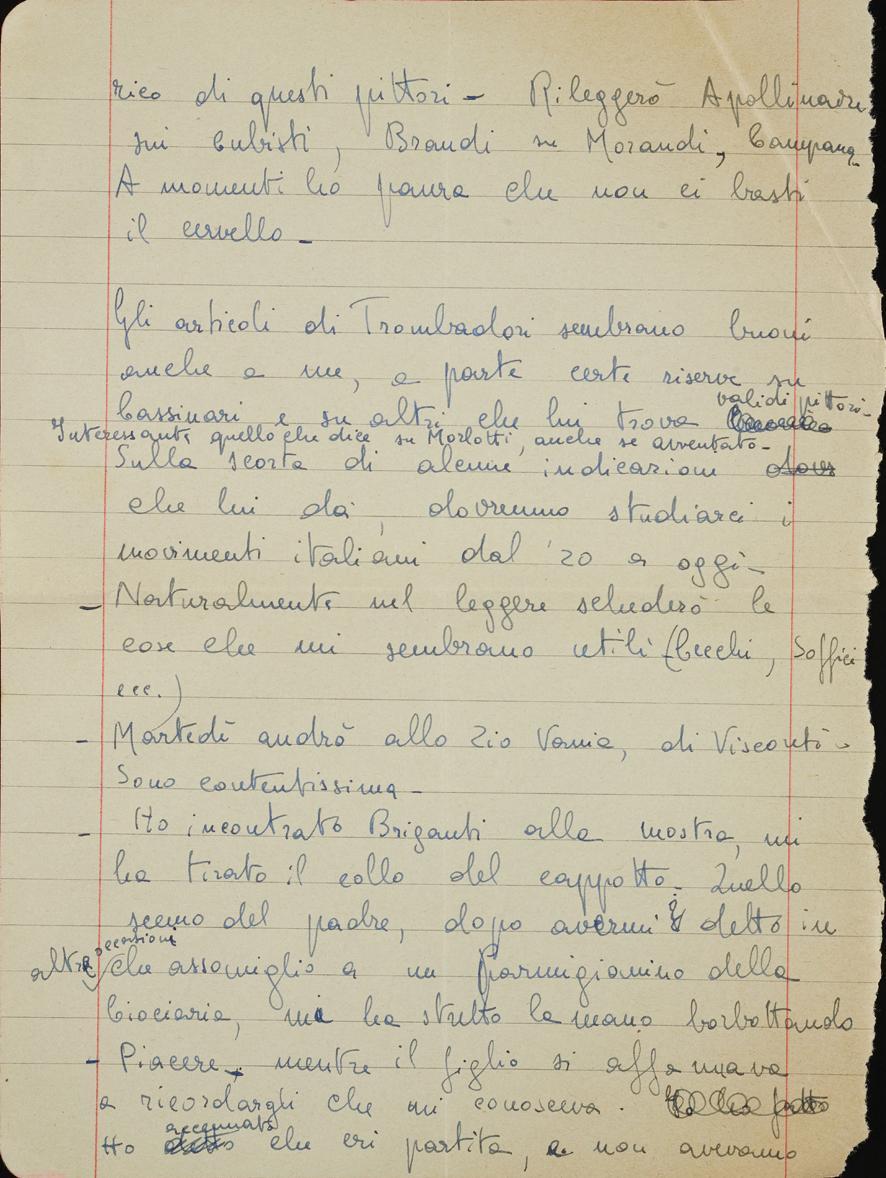 rico di questi pittori – Rileggerò Apollinaire
sui Cubisti, Brandi su Morandi, Campana
A momenti ho paura che non ci basti
il cervello –
Gli articoli di Trombadori sembrano buoni
anche a me, a parte certe riserve su
Cassinari e su altri che lui trova validi pittori –
Interessante quello che dice su Morlotti, anche se avventato –
Sulla scorta di alcune indicazioni
che lui dà, dovremmo studiarci i
movimenti italiani dal '20 a oggi –
– Naturalmente nel leggere schederò le
cose che mi sembrano utili (Cecchi, Soffici
ecc.)
– Martedì andrò allo Zio Vania, di Visconti –
Sono contentissima –
– Ho incontrato Briganti alla mostra, mi
ha tirato il collo del cappotto. Quello
scemo del padre, dopo avermi detto in
altre occasioni che assomiglio a un Parmigianino della
Ciociaria, mi ha stretto la mano borbottando
– Piacere –, mentre il figlio si affannava
a ricordargli che mi conosceva.
Ho accennato che eri partita, e non avevamo